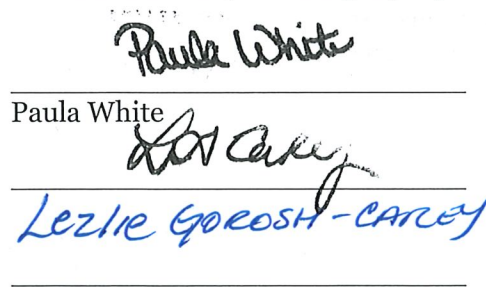 Paula White
Paula White
LG Carey
Lezlie GOROSH-CAREY